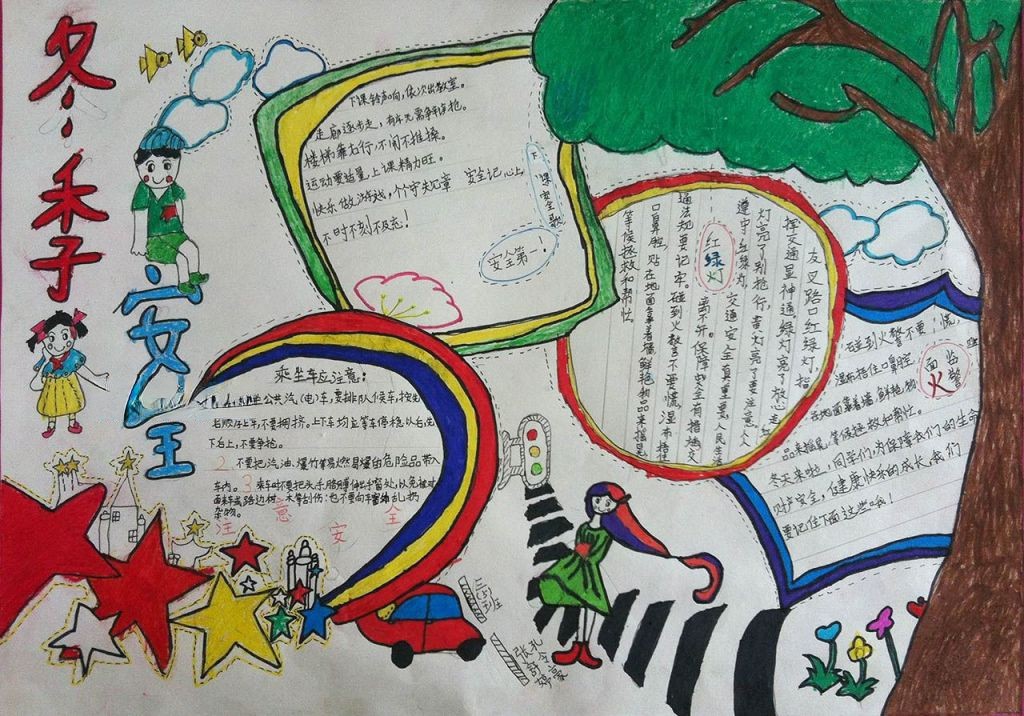 冬季
安全
下课安全歌
下课铃声响,依次出教室。
走廊逐步走,有序无需争与抢。
楼梯靠右行,不闹不推操。
运动要适量,上课精力旺。
快乐做游戏,个个守规章 安全记心上,
不时不刻不及忘!
安全第一!
乘坐车应注意:
公共汽(电)车,要排队候车,按先
后顺序上车,不要拥挤。上下车均应等车停稳以后,先
下后上,不要争抢。
2 不要把汽油、爆竹等易燃易爆的危险品带入
车内。3 乘车时不要把头、手、胳膊伸出手窗外,以免被对
面来车或路边树 木等刮伤;也不要向车窗外乱扔
杂物。
注意安全
红绿灯
交叉路口红绿灯,指
挥交通显神通,绿灯亮了放心走,红
灯亮了别抢行,黄灯亮了要注意,人人
遵守红绿灯。
交通安全真重要,人民生活
离不开。保障安全有措施,交
通法规要记牢。碰到火警不要慌,湿布捂住
口鼻腔,贴在地面靠着墙,鲜艳物品来摇晃,
等候拯救和帮忙。
面临火警
碰到火警不要慌,
湿布捂住口鼻腔,
贴在地面靠着墙,鲜艳物
品来摇晃,等候拯救和帮忙。
冬天来啦,同学们,为保障我们的生命
财产安全,健康快乐的成长,我们
要记住下面这些哦!
三(5)班